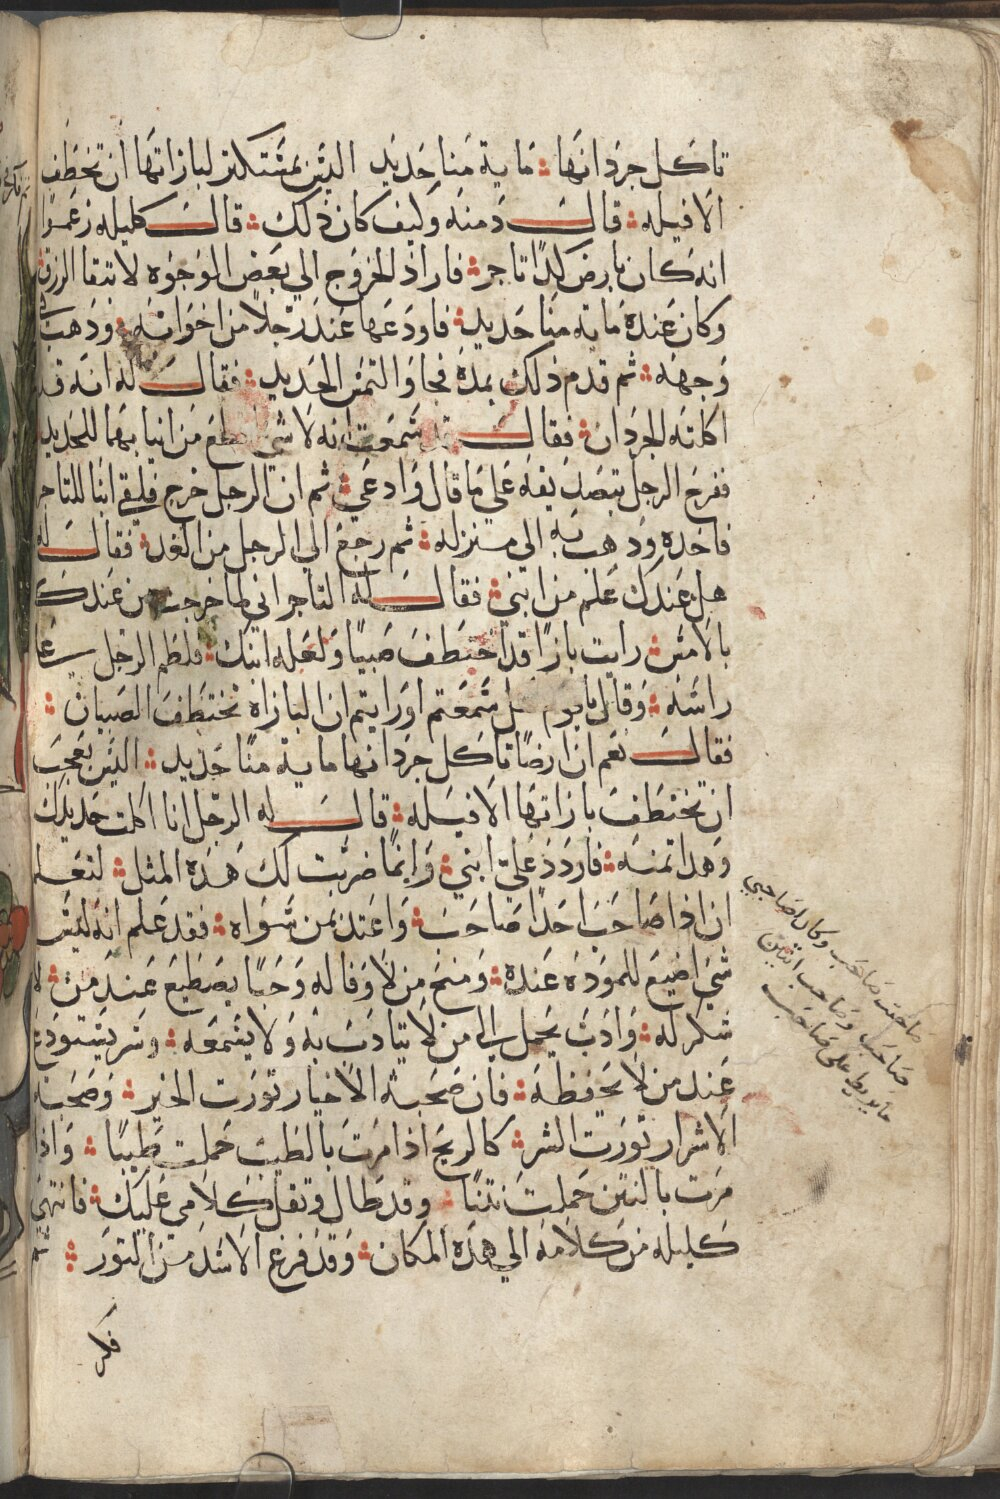 تاكل جردانها ماية منا حديد اليس بمستنكر لبازاتها ان تخطف
الافيله قال دمنه وكيف كان ذلك قال كليله زعموا
انه كان بارض كذا تاجر فاراد الخروج الي بعض الوجوه لابتغا الرزق
وكان عنده ماية منا حديد فاودعها عند رجلا من اخوانه وذهب في
وجهه ثم قدم ذلك بمدة فجا والتمس الحديد فقال له انه قد
اكلته الجردان فقال قد سمعت انه لا شي اقطع من انيابهما للحديد
ففرح الرجل بتصديقه علي ما قال وادعي ثم ان الرجل خرج فلقي ابنا للتاجر
فاخده وذهب به الي منزله ثم رجع الي الرجل من الغد فقال له
هل عندك علم من ابني فقال له التاجر اني لما خرجت من عندك
بالامس رايت بازا قد اختطف صبيا ولعله ابنك فلطم الرجل علي
راسه وقال يا قوم هل سمعتم او رايتم ان البازاه تختطف الصبيان
فقال نعم ان ارضا تاكل جردانها ماية منا حديد اليس بعجب
ان تختطف بازاتها الافيله قال له الرجل انا اكلت حديدك
وهدا تمنه فاردد علي ابني وانما ضربت لك هذه المثل لتعلم
ان اذا صاحب احدا صاحب واعتد بمن سواه فقد علم انه ليس
شي اضيع للمودة عنده ومنح من لا وفا له وحبا يصطنع عند من لا
شكر له وادب يحمل الي من لا يتادب به ولا يسمعه وسر يستودع
عند من لا يحفظه فان صحبة الاخيار تورت الخير وصحبة
الاشرار تورت الشر كالريح اذا مرت بالطيب حملت طيبا واذا
مرت بالنتن حملت نتنا وقد طال وتقل كلامي عليك فانتهي
كليله من كلامه الي هذه المكان وقد فرغ الاسد من التور
فكر
صاحبت صاحب وكان صاحبي
صاحب وصاحب اتنين
صاحب